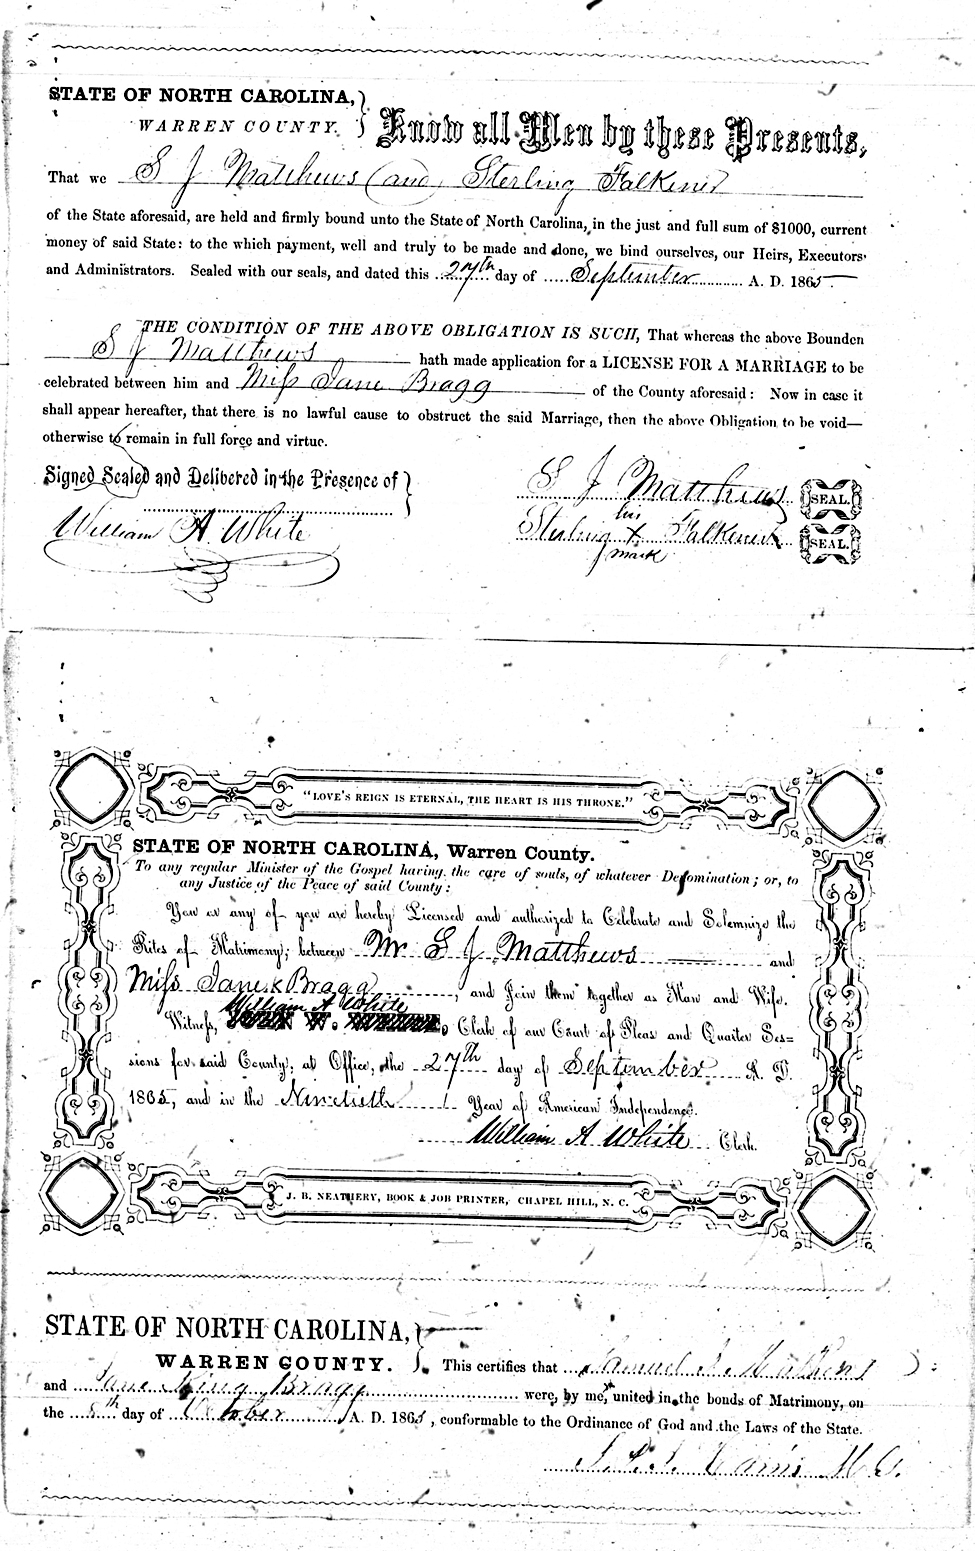 STATE OF NORTH CAROLINA,
WARREN COUNTY.
Know all Men by these Presents,
That we S J Matthews (and) Sterling Falkener
of the State aforesaid, are held and firmly bound unto the State of North Carolina, in the just and full sum of $1000, current
money of said State: to the which payment, well and truly to be made and done, we bind ourselves, our Heirs, Executors
and Administrators. Sealed with our seals, and dated this 27th day of September A. D. 1865
THE CONDITION OF THE ABOVE OBLIGATION IS SUCH, That whereas the above Bounden
S J Matthews hath made application for a LICENSE FOR A MARRIAGE to be
celebrated between him and Miss Jane Bragg of the County aforesaid: Now in case it
shall appear hereafter, that there is no lawful cause to obstruct the said Marriage, then the above Obligation to be void—
otherwise to remain in full force and virtue.
Signed Sealed and Delibered in the Presence of
S J Matthews SEAL.
William A White
his
Sterling X Falkener SEAL.
mark
"LOVE'S REIGN IS ETERNAL, THE HEART IS HIS THRONE."
STATE OF NORTH CAROLINA, Warren County.
To any regular Minister of the Gospel having the care of souls, of whatever Denomination; or, to
any Justice of the Peace of said County:
You or any of you are hereby Licensed and authorized to Celebrate and Solemnize the
Rites of Matrimony, between Mr S J Matthews and
Miss Jane K Bragg, and Join them together as Man and Wife.
William A White
Witness, Clerk of our Court of Pleas and Quarter Ses=
sions for said County, at Office, the 27th day of September A. D.
1865, and in the Ninetieth Year of American Independence.
William A White Clerk.
J. B. NEATHERY, BOOK & JOB PRINTER, CHAPEL HILL, N. C.
STATE OF NORTH CAROLINA,
WARREN COUNTY.
This certifies that Samuel J. Matthews
and Jane King Bragg were, by me, united in the bonds of Matrimony, on
the th day of October A. D. 1865, conformable to the Ordinance of God and the Laws of the State.